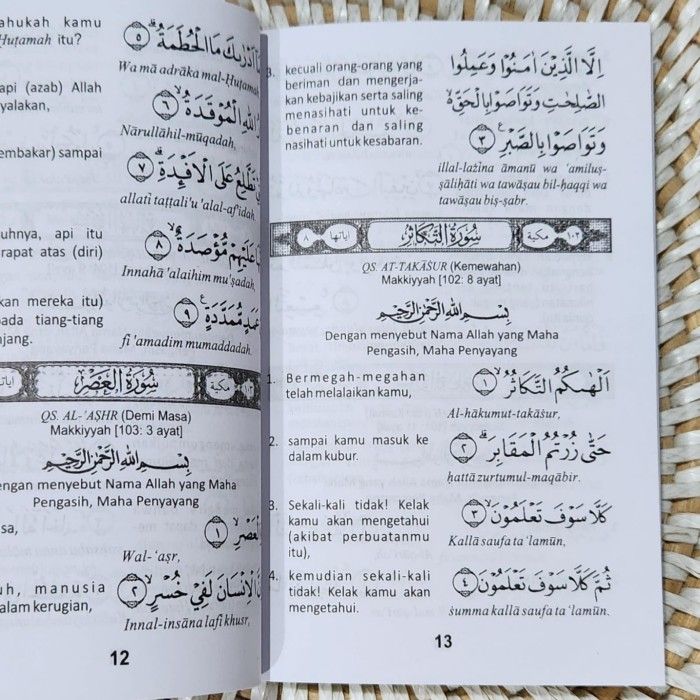 ahukah kamu
Huṭamah itu?
مَآ اَدْرٰىكَ مَا الْحُطَمَةُ ۗ ٥
Wa mā adrāka mal-Ḥuṭamah,
api (azab) Allah
yalakan,
اللّٰهِ الْمُوْقَدَةُ ۙ ٦
Nārullāhil-mūqadah,
embakar) sampai
تَطَّلِعُ عَلَى الْاَفْـِٕدَةِ ۗ ٧
allatī taṭṭali'u 'alal-af'idah,
uhnya, api itu
rapat atas (diri)
عَلَيْهِمْ مُّؤْصَدَةٌ ۙ ٨
Innahā 'alaihim mu'ṣadah,
kan mereka itu)
pada tiang-tiang
jang.
عَمَدٍ مُّمَدَّدَةٍ ࣖ ٩
fī 'amadim mumaddadah.
اياتها سُوْرَةُ الْعَصْرِ مكية ١٠٣
QS. AL-'AṢHR (Demi Masa)
Makkiyyah [103: 3 ayat]
بِسْمِ اللّٰهِ الرَّحْمٰنِ الرَّحِيْمِ
Dengan menyebut Nama Allah yang Maha
Pengasih, Maha Penyayang
sa,
الْعَصْرِ ۙ ١
Wal-'aṣr,
uh, manusia
alam kerugian,
الْاِنْسَانَ لَفِيْ خُسْرٍ ۙ ٢
Innal-insāna lafī khusr,
12
3. kecuali orang-orang yang
beriman dan mengerja-
kan kebajikan serta saling
menasihati untuk ke-
benaran dan saling
nasihati untuk kesabaran.
اِلَّا الَّذِيْنَ اٰمَنُوْا وَعَمِلُوا
الصّٰلِحٰتِ وَتَوَاصَوْا بِالْحَقِّ ۙ
وَتَوَاصَوْا بِالصَّبْرِ ࣖ ٣
illal-lażīna āmanū wa 'amiluṣ-
ṣāliḥāti wa tawāṣau bil-ḥaqqi wa
tawāṣau biṣ-ṣabr.
٨ اياتها سُوْرَةُ التَّكَاثُرِ مكية ١٠٢
QS. AT-TAKĀṠUR (Kemewahan)
Makkiyyah [102: 8 ayat]
بِسْمِ اللّٰهِ الرَّحْمٰنِ الرَّحِيْمِ
Dengan menyebut Nama Allah yang Maha
Pengasih, Maha Penyayang
1. Bermegah-megahan
telah melalaikan kamu,
اَلْهٰىكُمُ التَّكَاثُرُ ۙ ١
Al-hākumut-takāṡur,
2. sampai kamu masuk ke
dalam kubur.
حَتّٰى زُرْتُمُ الْمَقَابِرَ ۗ ٢
ḥattā zurtumul-maqābir.
3. Sekali-kali tidak! Kelak
kamu akan mengetahui
(akibat perbuatanmu
itu),
كَلَّا سَوْفَ تَعْلَمُوْنَ ۙ ٣
Kallā saufa ta'lamūn,
4. kemudian sekali-kali
tidak! Kelak kamu akan
mengetahui.
ثُمَّ كَلَّا سَوْفَ تَعْلَمُوْنَ ۗ ٤
ṡumma kallā saufa ta'lamūn.
13